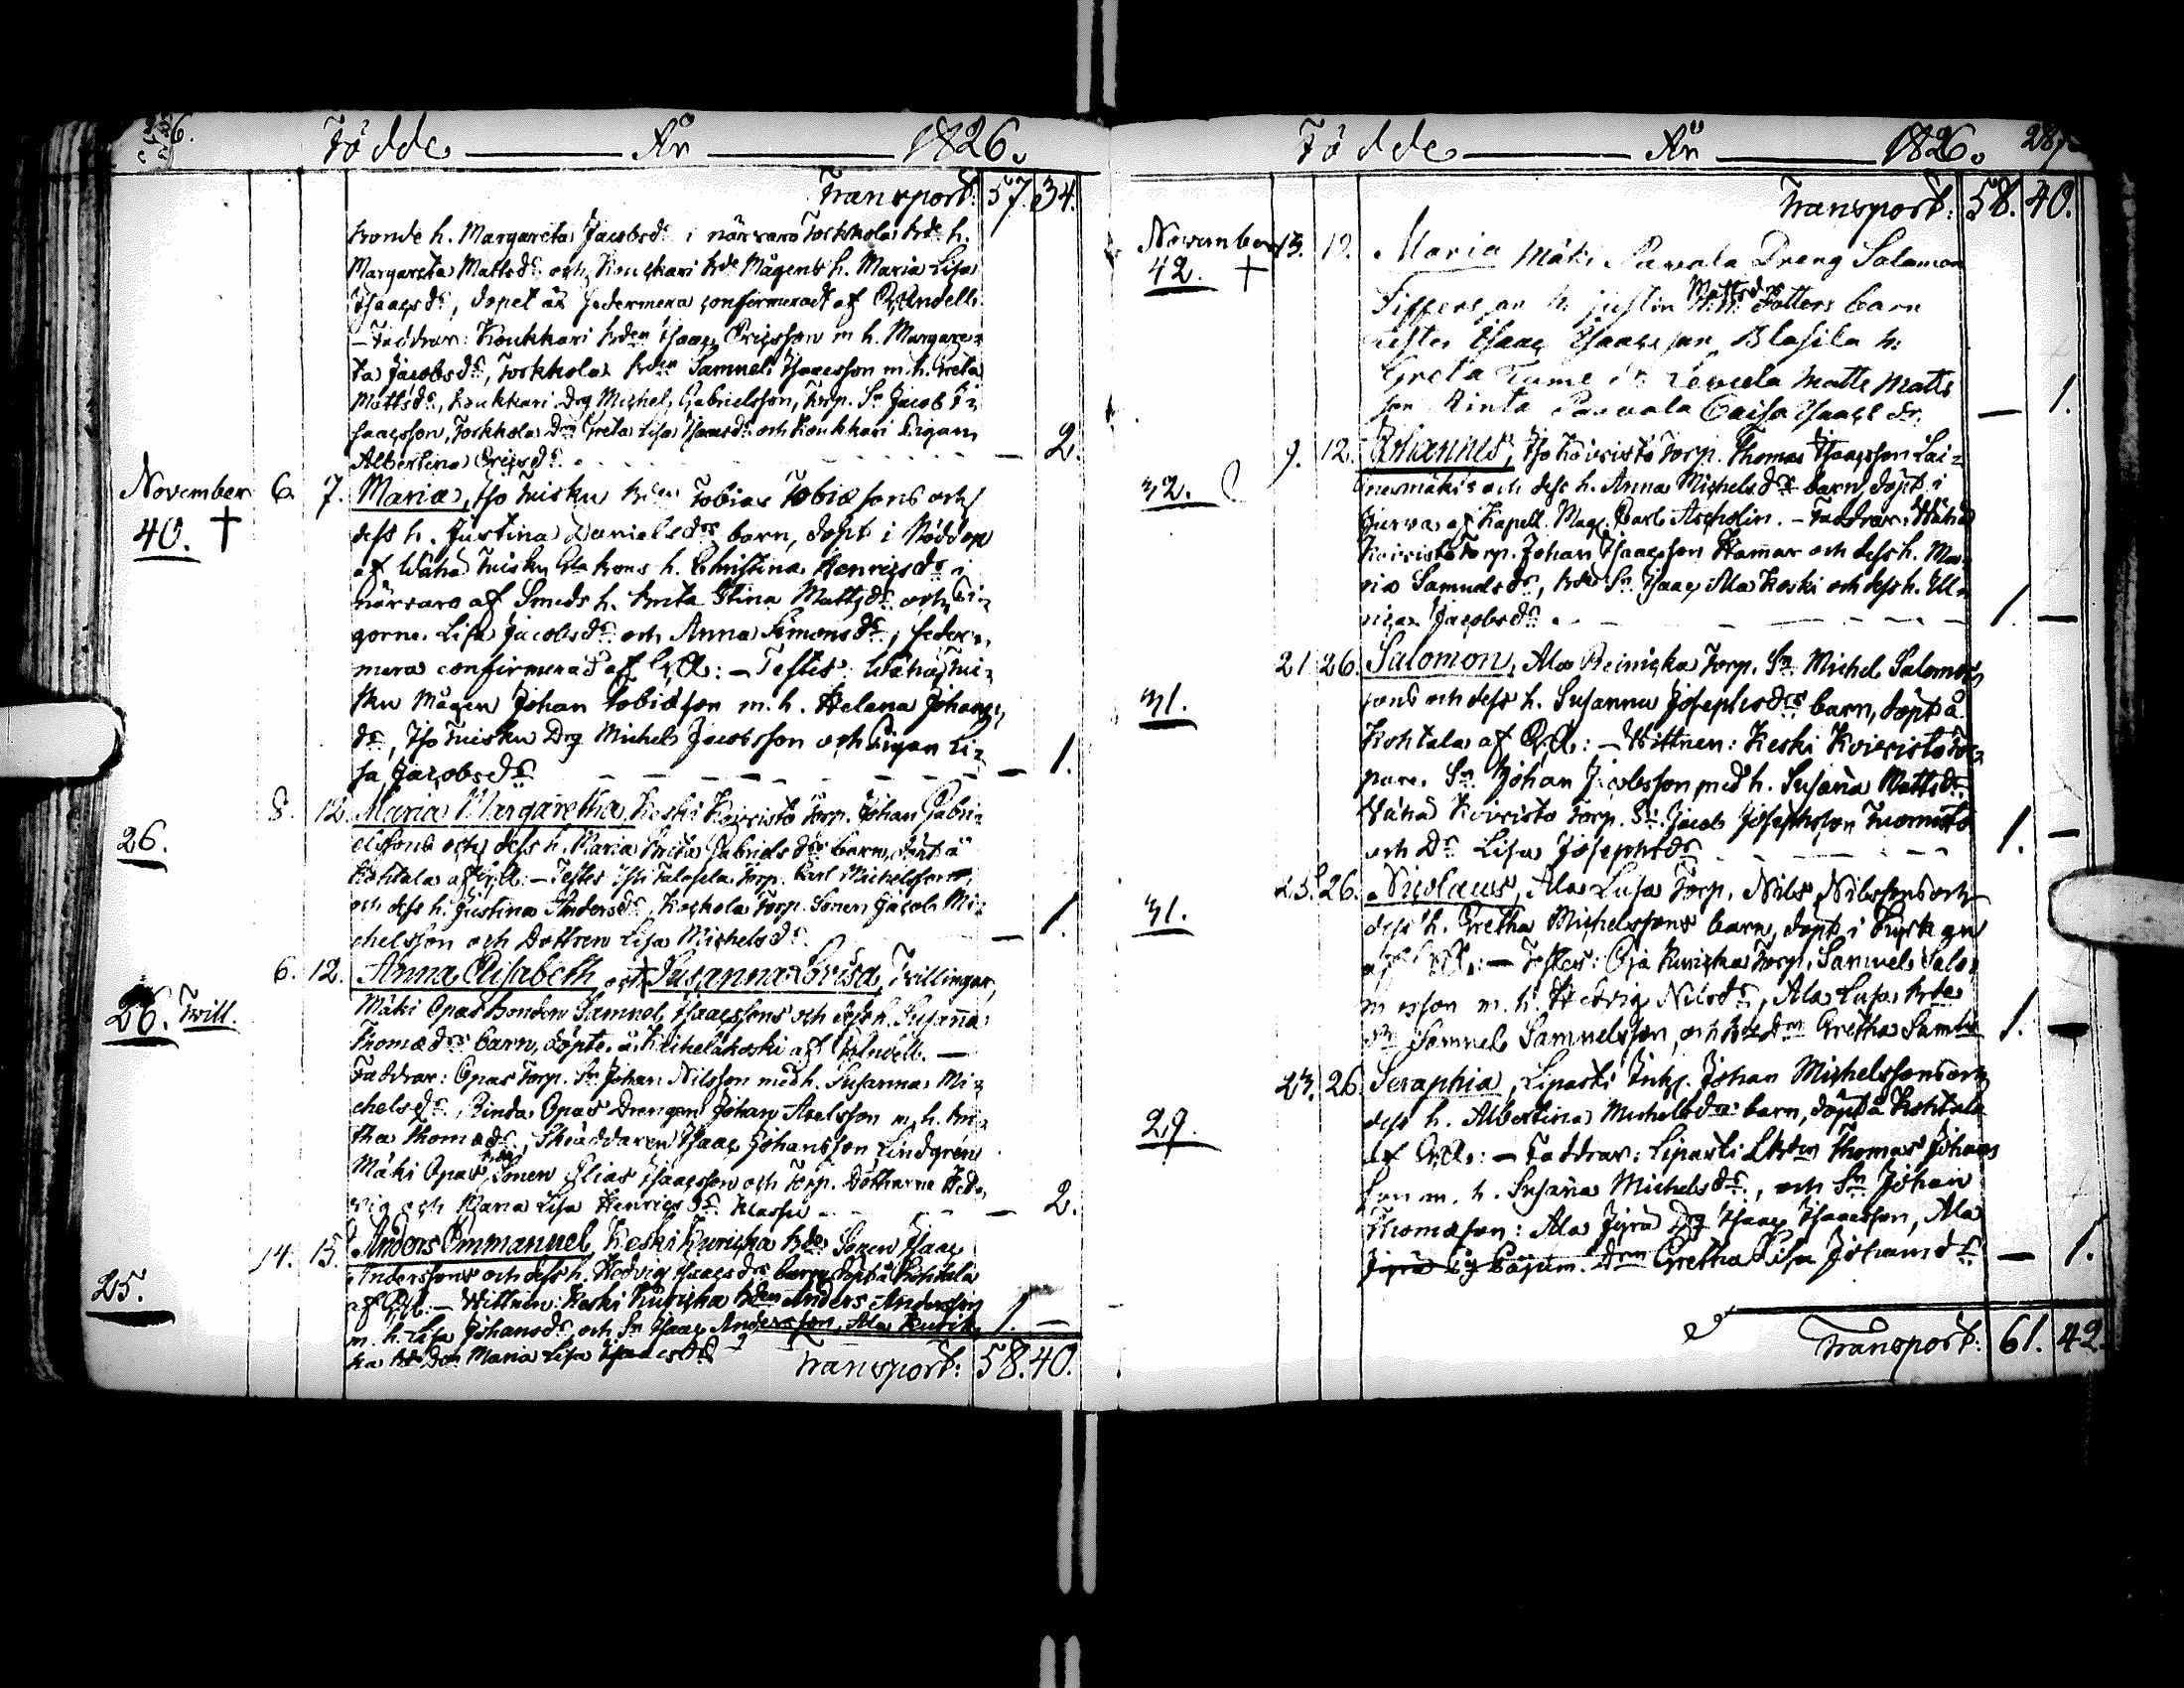 286.
Födde År 1826.
Transport: 57. 34.
bonde h. Margareta Jacobsdr i närvaro Torkkola bde h.
Margareta Mattsdr och Koukkari bde Mågens h. Maria Lisa
Isaacsdr, dopet är sedermera confirmeradt af
– Faddrar: Koukkari bden Isaac Ericsson m h. Margare=
ta Jacobsdr, Torkkola bden Samuel Isaacsson m. h. Greta
Mattsdr, Koukkari Drg Michel Gabrielsson, Torp. Sn Jacob I=
saacsson, Torkkola Dm Greta Lisa Isaacsdr och Koukkari Pigan
Albertina Ericsdr. — 2.
November 6. 7. Maria, Iso Tuisku bden Tobias Tobiæsons och
40. † dess h. Justina Danielsdrs barn, döpt i Nöddop
af Wähä Tuisku h. Christina Henricsdr i
närvaro af Smeds h. Brita Stina Mattsdr och Pi=
gorna Lisa Jacobsdr och Anna Simonsdr, seder=
mera confirmerad af — Testes: Wähä Tui=
sku Mågen Johan Tobiæson m. h. Helena Johans
dr, Iso Tuisku Drg Michel Jacobsson och Pigan Li=
sa Jacobsdr. — 1.
8. 12. Maria Margaretha, Keski Koivisto Torp. Johan Gabri=
26. elssons och dess h. Maria Brita Gabrielsdrs barn, döpt å
Kohtala af — Testes Torp. Carl Michelsson
och dess h. Justina Andersdr, Torp. Sonen Jacob Mi=
chelsson och Dottren Lisa Michelsdr — 1.
6. 12. Anna Elisabeth och Susanna Lovisa, Tvillingar,
26. Twill. Mäki Opas bonden Samuel Isaacssons och dess h. Susanna
Thomædrs barn, döpte å af —
Faddrar: Opas Torp. Sn Johan Nilsson med h. Susanna Mi=
chelsdr, Rinda Opas Drengen Johan Axelsson m. h. Bri=
tha Thomædr, Skräddaren Isaac Johansson Lindgren
Mäki Opas bde Sonen Elias Isaacsson och Torp. Döttrarne Hed=
vig och Maria Lisa Henricsdr. Klassu — 2.
14. 15. Anders Emmanuel, Keski Kuricka bde Sonen Isaac
25. Anderssons och dess h. Hedvig Isaacsdrs barn, döpt å Kohtala
af — Wittnen: Keski Kuricka bden Anders Andersson
m. h. Lisa Johansdr, och Sn Isaac Andersson, Ala Kuric=
ka bde Don Maria Lisa Isaacsdr 1. —
Transport: 58. 40.
Födde År 1826. 287
Transport: 58. 40.
November 13. 19. Maria Mäki Pawala Dreng Salomon
42. † h. Justin Mattsdotters barn
Testes Isaac Isaacsson Blasila h.
Greta Matts Matts
son Rinta Pawala Caisa Isaacs dr. — 1.
9. 12. Johannes, Iso Koivisto Torp. Thomas Isaacsson Lai=
32. nesmäkis och dess h. Anna Michelsdrs barn, döpt i
af Kapell. Mag. Carl Ascholin. – Faddrar: Wähä
Koivisto Torp. Johan Isaacsson Hamar och dess h. Ma=
ria Samuelsdr, bde Sn Isaac Ala Koski och dess h. Ul=
rica Jacobsdr. 1. —
21. 26. Salomon, Ala Reinicka Torp. Sn Michel Salomons
31. sons och dess h. Susanna Josephsdrs barn, döpt å
Kohtala af — Wittnen: Keski Koivisto Tor=
pare Sn Johan Jacobsson med h. Susanna Mattsdr
Wähä Koivisto Torp. Sn. Jacob Josephsson Tuomisto
och Dr Lisa Josephsdr 1. —
23. 26. Nicolaus, Ala Lusa Torp. Nils Nilssons och
31. dess h. Gretha Michelssons barn, döpt i Kyrkan
af — Testes: Oja Kuricka Torp. Samuel Salo=
monsson m. h. Hedvig Nilsdr, Ala Lusa bde
Sn Samuel Samuelsson, och bde Dm Gretha Samls 1. —
23. 26. Seraphia, Liparski Inhs. Johan Michelssons och
29. dess h. Albertina Michelsdrs barn, döpt å Kohtala
af — Faddrar: Liparski Thomas Johans
son m. h. Susanna Michelsdr, och Sn Johan
Thomæson: Ala Jyrä Drg Isaac Isaacsson, Ala
Jyrä Dm Gretha Lisa Johansdr — 1.
Transport: 61. 42.